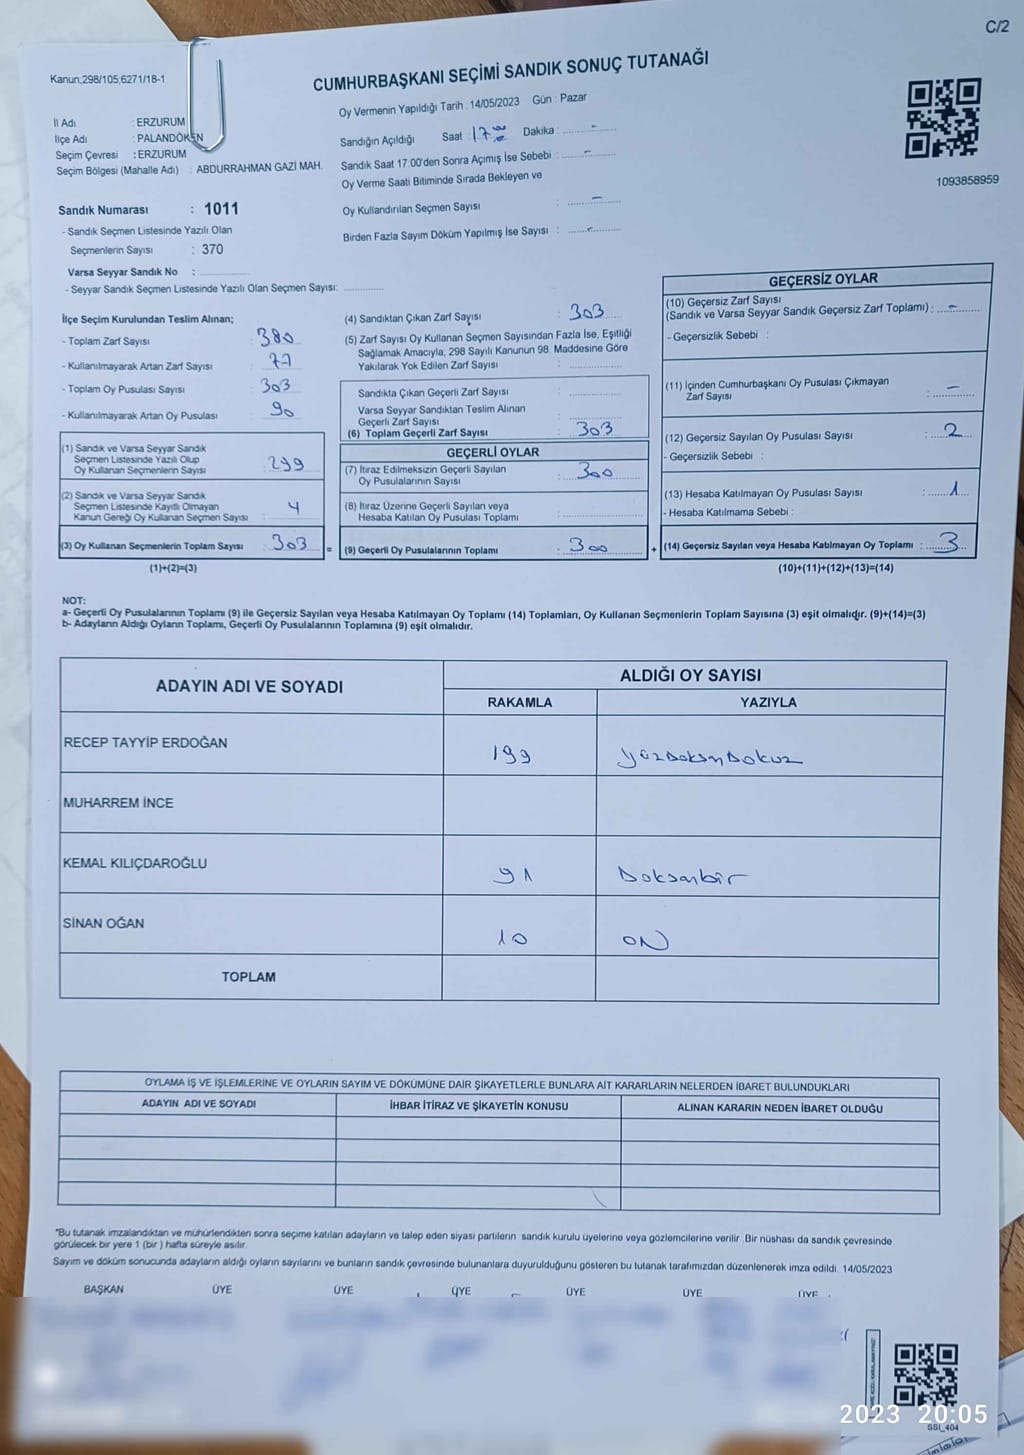 C/2
Kanun,298/105;6271/18-1
CUMHURBAŞKANI SEÇİMİ SANDIK SONUÇ TUTANAĞI
Oy Vermenin Yapıldığı Tarih : 14/05/2023 Gün : Pazar
İl Adı : ERZURUM
İlçe Adı : PALANDÖKEN
Seçim Çevresi : ERZURUM
Seçim Bölgesi (Mahalle Adı) : ABDURRAHMAN GAZİ MAH.
Sandık Numarası : 1011
- Sandık Seçmen Listesinde Yazılı Olan
Seçmenlerin Sayısı : 370
Varsa Seyyar Sandık No : ................
- Seyyar Sandık Seçmen Listesinde Yazılı Olan Seçmen Sayısı: .............
Sandığın Açıldığı Saat 17.00 Dakika : ......-......
Sandık Saat 17:00'den Sonra Açımış İse Sebebi : ......-......
Oy Verme Saati Bitiminde Sırada Bekleyen ve
Oy Kullandırılan Seçmen Sayısı : ......-......
Birden Fazla Sayım Döküm Yapılmış İse Sayısı : ......-......
1093858959
İlçe Seçim Kurulundan Teslim Alınan;
- Toplam Zarf Sayısı : 380
- Kullanılmayarak Artan Zarf Sayısı : 77
- Toplam Oy Pusulası Sayısı : 303
- Kullanılmayarak Artan Oy Pusulası : 90
(1) Sandık ve Varsa Seyyar Sandık
Seçmen Listesinde Yazılı Olup
Oy Kullanan Seçmenlerin Sayısı : 299
(2) Sandık ve Varsa Seyyar Sandık
Seçmen Listesinde Kayıtlı Olmayan
Kanun Gereği Oy Kullanan Seçmen Sayısı : 4
(3) Oy Kullanan Seçmenlerin Toplam Sayısı : 303 =
(1)+(2)=(3)
(4) Sandıktan Çıkan Zarf Sayısı : 303
(5) Zarf Sayısı Oy Kullanan Seçmen Sayısından Fazla İse, Eşitliği
Sağlamak Amacıyla; 298 Sayılı Kanunun 98. Maddesine Göre
Yakılarak Yok Edilen Zarf Sayısı : .............
Sandıkta Çıkan Geçerli Zarf Sayısı : .............
Varsa Seyyar Sandıktan Teslim Alınan
Geçerli Zarf Sayısı : .............
(6) Toplam Geçerli Zarf Sayısı : 303
GEÇERLİ OYLAR
(7) İtiraz Edilmeksizin Geçerli Sayılan
Oy Pusulalarının Sayısı : 300
(8) İtiraz Üzerine Geçerli Sayılan veya
Hesaba Katılan Oy Pusulası Toplamı : .............
(9) Geçerli Oy Pusulalarının Toplamı : 300 +
GEÇERSİZ OYLAR
(10) Geçersiz Zarf Sayısı
(Sandık ve Varsa Seyyar Sandık Geçersiz Zarf Toplamı) : ...-.......
- Geçersizlik Sebebi :
(11) İçinden Cumhurbaşkanı Oy Pusulası Çıkmayan
Zarf Sayısı : ...-.......
(12) Geçersiz Sayılan Oy Pusulası Sayısı : 2
- Geçersizlik Sebebi :
(13) Hesaba Katılmayan Oy Pusulası Sayısı : 1
- Hesaba Katılmama Sebebi :
(14) Geçersiz Sayılan veya Hesaba Katılmayan Oy Toplamı : 3
(10)+(11)+(12)+(13)=(14)
NOT:
a- Geçerli Oy Pusulalarının Toplamı (9) ile Geçersiz Sayılan veya Hesaba Katılmayan Oy Toplamı (14) Toplamları, Oy Kullanan Seçmenlerin Toplam Sayısına (3) eşit olmalıdır. (9)+(14)=(3)
b- Adayların Aldığı Oyların Toplamı, Geçerli Oy Pusulalarının Toplamına (9) eşit olmalıdır.
ADAYIN ADI VE SOYADI ALDIĞI OY SAYISI
RAKAMLA YAZIYLA
RECEP TAYYİP ERDOĞAN 199 YüzDoksanDokuz
MUHARREM İNCE
KEMAL KILIÇDAROĞLU 91 Doksanbir
SİNAN OĞAN 10 ON
TOPLAM
OYLAMA İŞ VE İŞLEMLERİNE VE OYLARIN SAYIM VE DÖKÜMÜNE DAİR ŞİKAYETLERLE BUNLARA AİT KARARLARIN NELERDEN İBARET BULUNDUKLARI
ADAYIN ADI VE SOYADI İHBAR İTİRAZ VE ŞİKAYETİN KONUSU ALINAN KARARIN NEDEN İBARET OLDUĞU
*Bu tutanak imzalandıktan ve mühürlendikten sonra seçime katılan adayların ve talep eden siyasi partilerin sandık kurulu üyelerine veya gözlemcilerine verilir. Bir nüshası da sandık çevresinde
görülecek bir yere 1 (bir ) hafta süreyle asılır.
Sayım ve döküm sonucunda adayların aldığı oyların sayılarını ve bunların sandık çevresinde bulunanlara duyurulduğunu gösteren bu tutanak tarafımızdan düzenlenerek imza edildi. 14/05/2023
BAŞKAN ÜYE ÜYE ÜYE ÜYE ÜYE ÜYE
2023 20:05
SSI_404